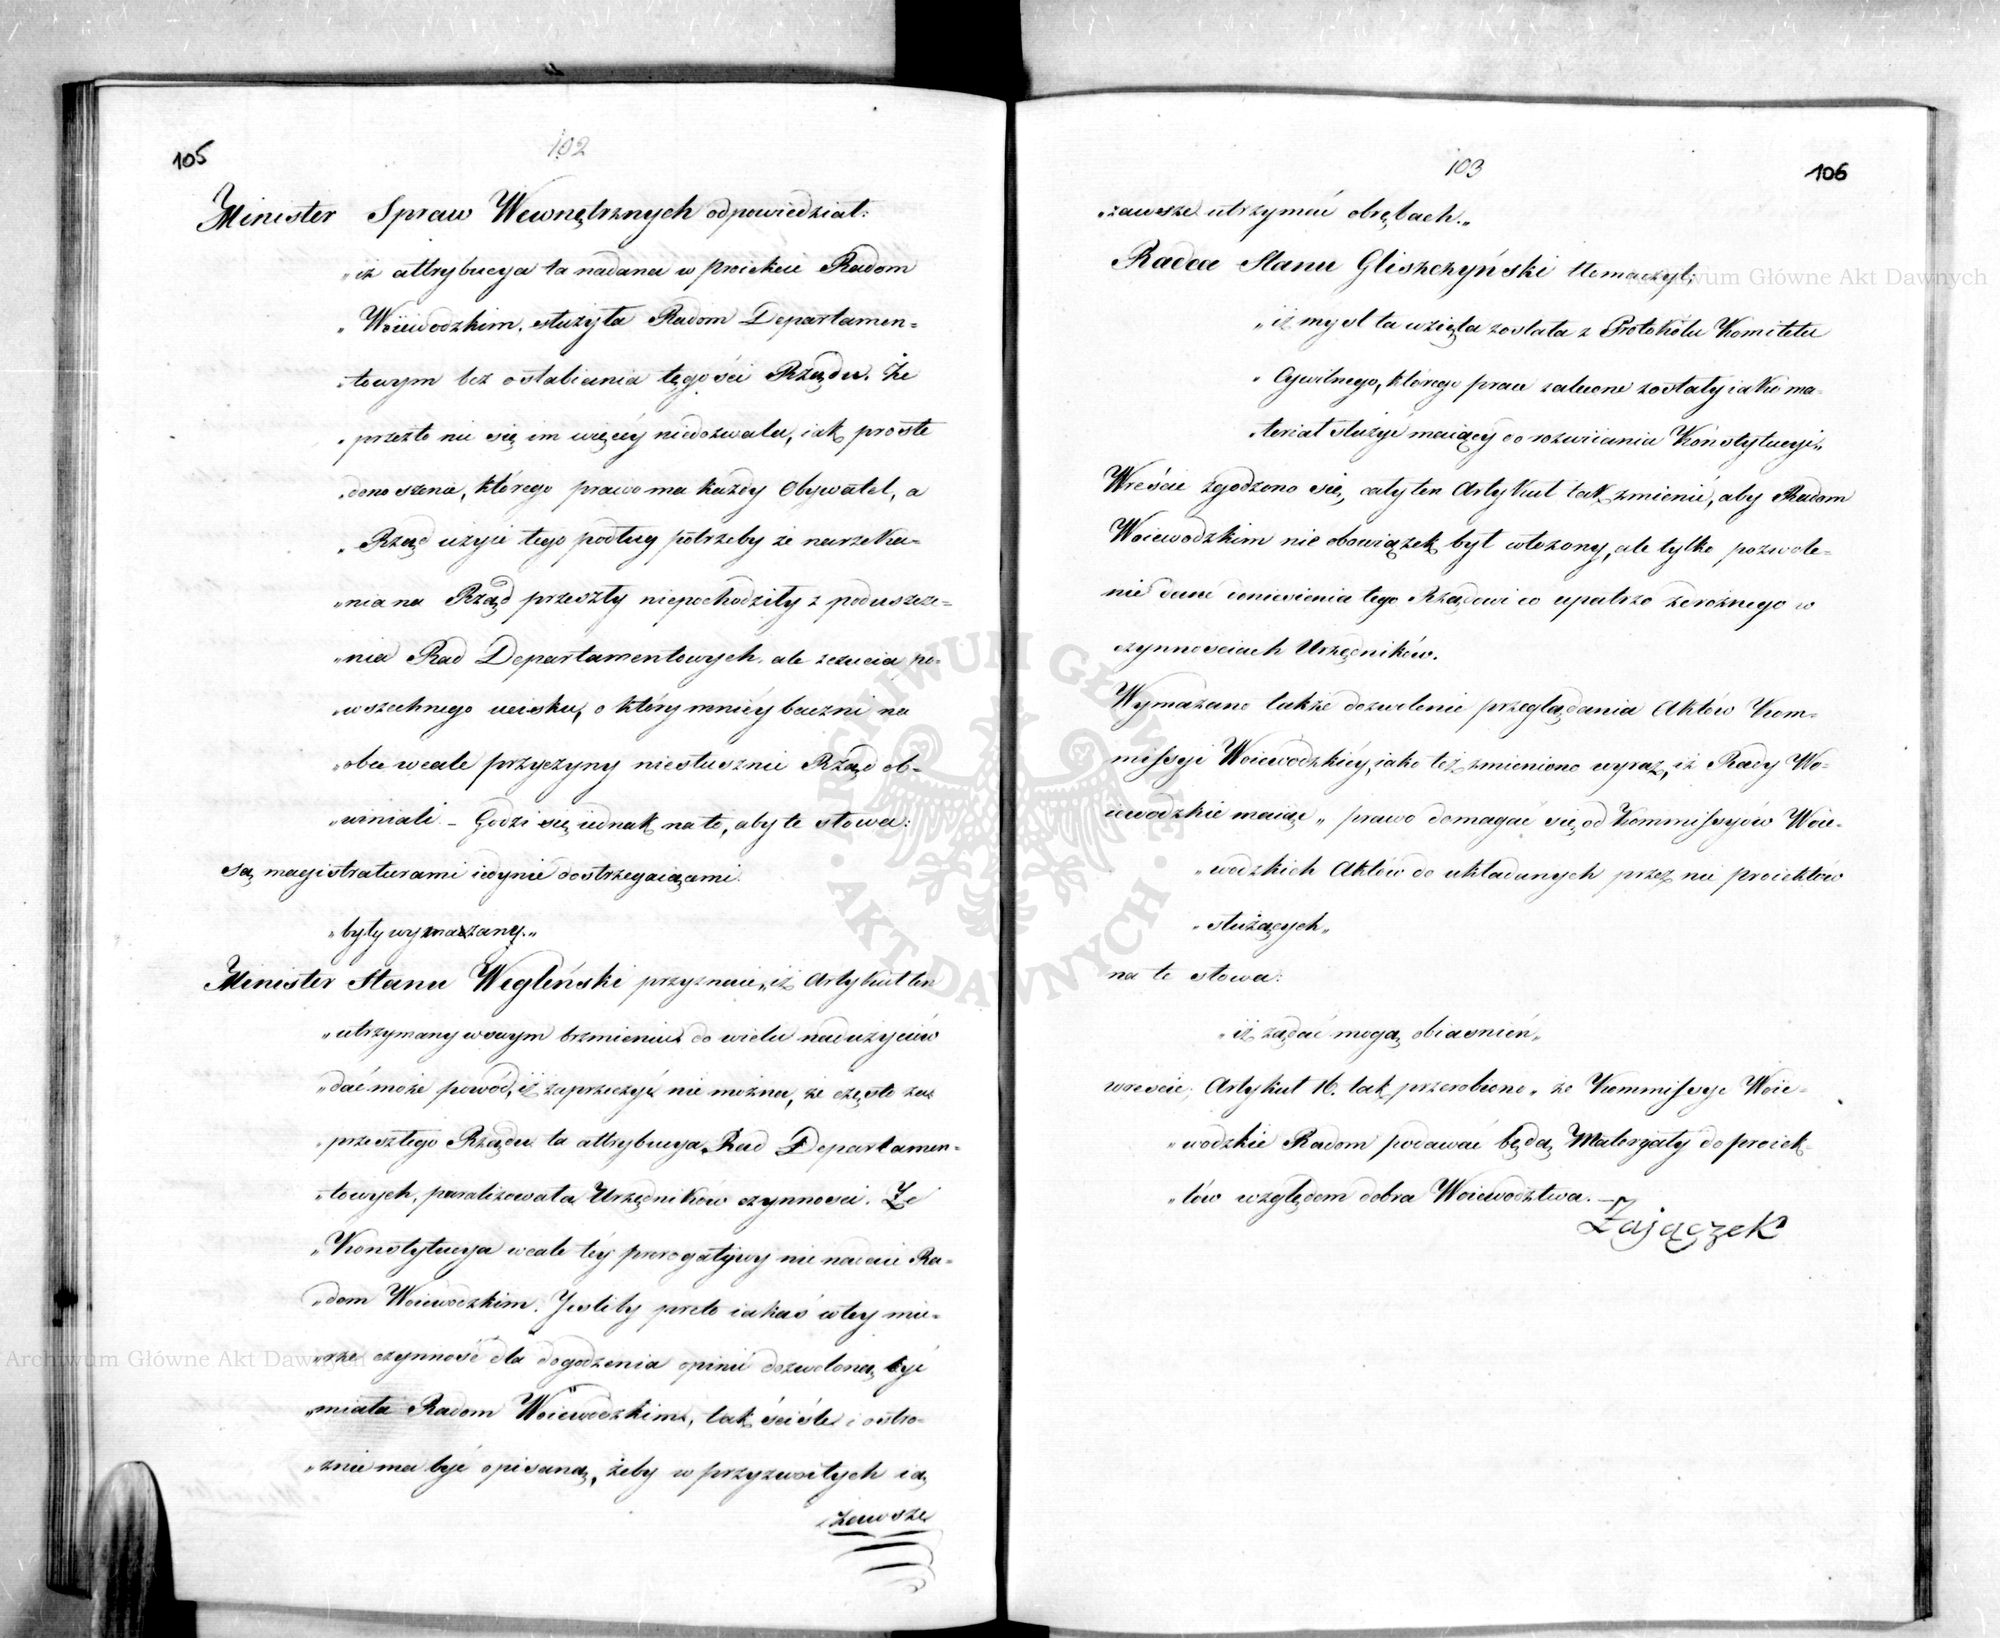 105
102
Minister Spraw Wewnętrznych odpowiedział:
„iż attrybucya ta nadana w proiekcie Radom
„Woiewodzkim, służyła Radom Departamen=
„towym bez osłabiania tęgości Rządu. Że
„przezto nic się im więcéy niedozwala, iak proste
„donoszenia, którego prawo ma każdy Obywatel, a
„Rząd użyie tego podług potrzeby że narzeka=
„nia na Rząd przeszły niepochodziły z poduszcze=
„nia Rad Departamentowych, ale zczucia po=
„wszechnego ucisku, o który mniéy baczni na
„obce wcale przyczyny niesłusznie Rząd ob=
„winiali. – Godzi się iednak na to, aby te słowa:
są magistraturami iedynie dostrzegaiącemi.
„były wymazany.„
Minister Stanu Węgleński przyznaie, „iż Artykuł ten
„utrzymany w swym brzmieniu do wielu nadużyciów
„dać może powód, iż zaprzeczyć nie można, że często za
„przeszłego Rządu ta attrybucya Rad Departamen=
„towych, paraliżowała Urzędników czynności. Że
„Konstytucya wcale téy prerogatywy nie nadaie Ra=
„dom Woiewodzkim. Jeśliby przeto iakaś w tey mie=
„rze czynność dla dogodzenia opinii dozwoloną być
„miała Radom Woiewodzkim, tak ściśle i ostro=
„żnie ma być opisaną, żeby w przyzwoitych ią
„zawsze
103
106
„zawsze utrzymać obrębach.„
Radca Stanu Gliszczyński tłemaczył,
„iż myśl ta wzięta została z Protokółu Komitetu
„Cywilnego, którego prace zalecone zostały iako ma=
„teriał służyć maiący do rozwiiania Konstytucyi„
Wreście zgodzono się, cały ten Artykuł tak zmienić, aby Radom
Woiewodzkim nie obowiązek był włożony, ale tylko pozwole=
nie dane doniesienia tego Rządowi co upatrzą zdrożnego w
czynnościach Urzędników.
Wymazano także dozwolenie przeglądania Aktów Kom=
missyi Woiewódzkiéy, iako też zmieniono wyraz, iż Rady Wo=
iewodzkie maiąc „prawo domagać się od Kommissyów Woie=
„wodzkich Aktów do układanych przez nie proiektów
„służących„
na te słowa:
„iż żądać mogą obiaśnień„
wreście, Artykuł 16. tak przerobiono „że Kommissye Woie=
„wodzkie Radom podawać będą Materyały do proiek=
„tów względem dobra Woiewodztwa. –
Zajączek
Archiwum Główne Akt Dawnych
Archiwum Główne Akt Dawnych
ARCHIWUM GŁÓWNE · AKT DAWNYCH ·